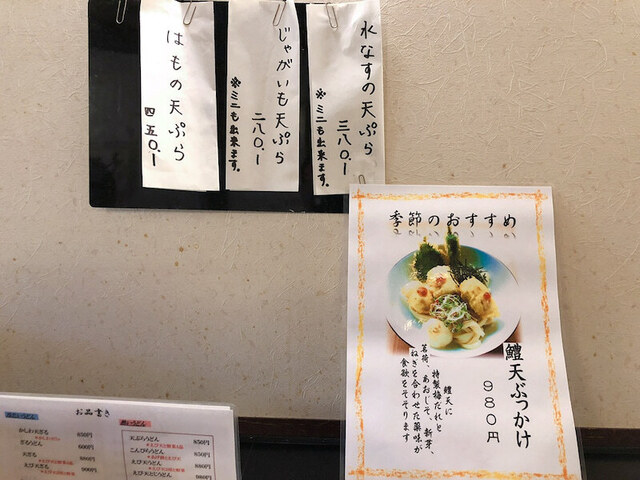 水なすの天ぷら
三八〇.ー
※ミニも出来ます。
じゃがいも天ぷら
二八〇.ー
※ミニも出来ます。
はもの天ぷら
四五〇.ー
季節のおすすめ
鱧天ぶっかけ
980円
鱧天に
特製梅だれと
茗荷、あおじそ、新芽、
ねぎを合わせた薬味が
食欲をそそります
お品書き
ざるうどん
600円
天ざる
天ぷらうどん
850円
こんぴらうどん
850円
えび天うどん
880円